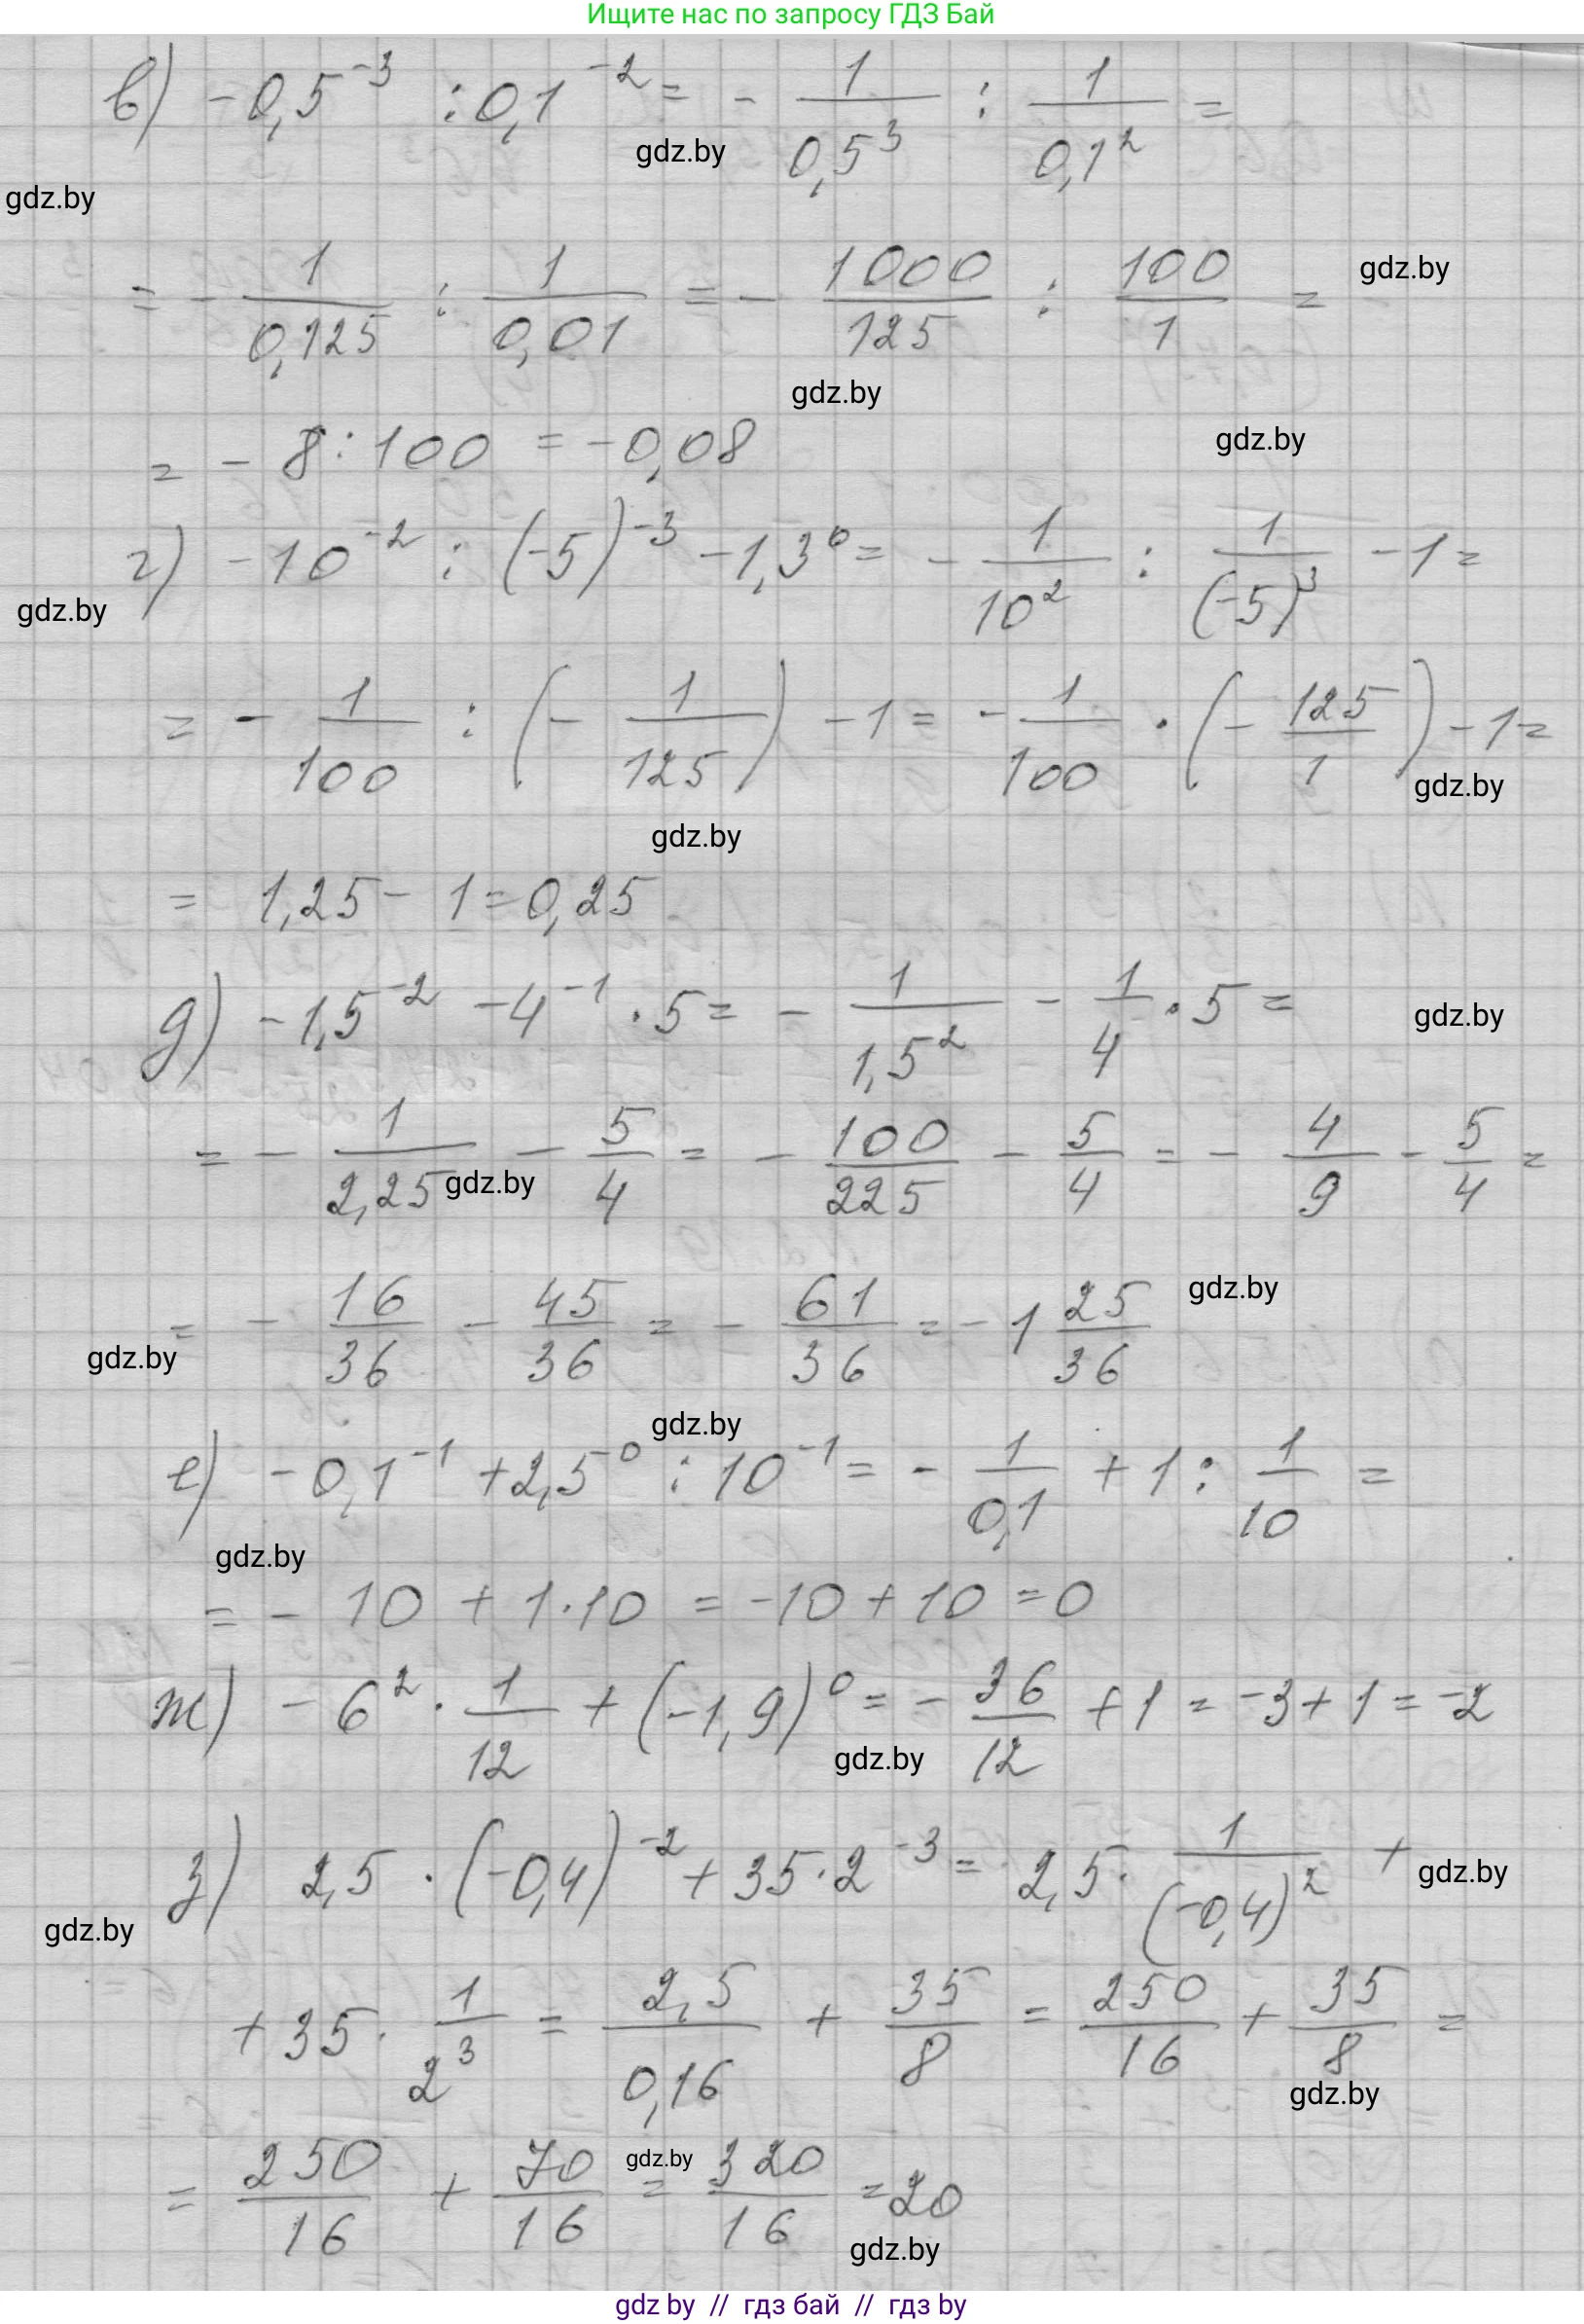 Ищите нас по запросу ГДЗ Бай
в) -0,5^{-3} : 0,1^{-2} = - 1/0,5^3 : 1/0,1^2 =
gdz.by
gdz.by
= - 1/0,125 : 1/0,01 = - 1000/125 : 100/1 =
gdz.by
gdz.by
= - 8 : 100 = -0,08
gdz.by
г) -10^{-2} : (-5)^{-3} - 1,3^0 = - 1/10^2 : 1/(-5)^3 - 1 =
gdz.by
= - 1/100 : (- 1/125) - 1 = - 1/100 · (- 125/1) - 1 =
gdz.by
gdz.by
= 1,25 - 1 = 0,25
д) -1,5^{-2} - 4^{-1} · 5 = - 1/1,5^2 - 1/4 · 5 =
gdz.by
= - 1/2,25 - 5/4 = - 100/225 - 5/4 = - 4/9 - 5/4 =
gdz.by
= - 16/36 - 45/36 = - 61/36 = - 1 25/36
gdz.by
gdz.by
gdz.by
е) -0,1^{-1} + 2,5^{-0} : 10^{-1} = - 1/0,1 + 1 : 1/10 =
gdz.by
= - 10 + 1·10 = -10 + 10 = 0
ж) - 6^2 · 1/12 + (-1,9)^0 = - 36/12 + 1 = -3 + 1 = -2
gdz.by
з) 2,5 · (-0,4)^{-2} + 35 · 2^{-3} = 2,5 · 1/(-0,4)^2 +
gdz.by
gdz.by
+ 35 · 1/2^3 = 2,5/0,16 + 35/8 = 250/16 + 35/8 =
gdz.by
= 250/16 + 70/16 = 320/16 = 20
gdz.by
gdz.by
gdz by // гдз бай // гдз by